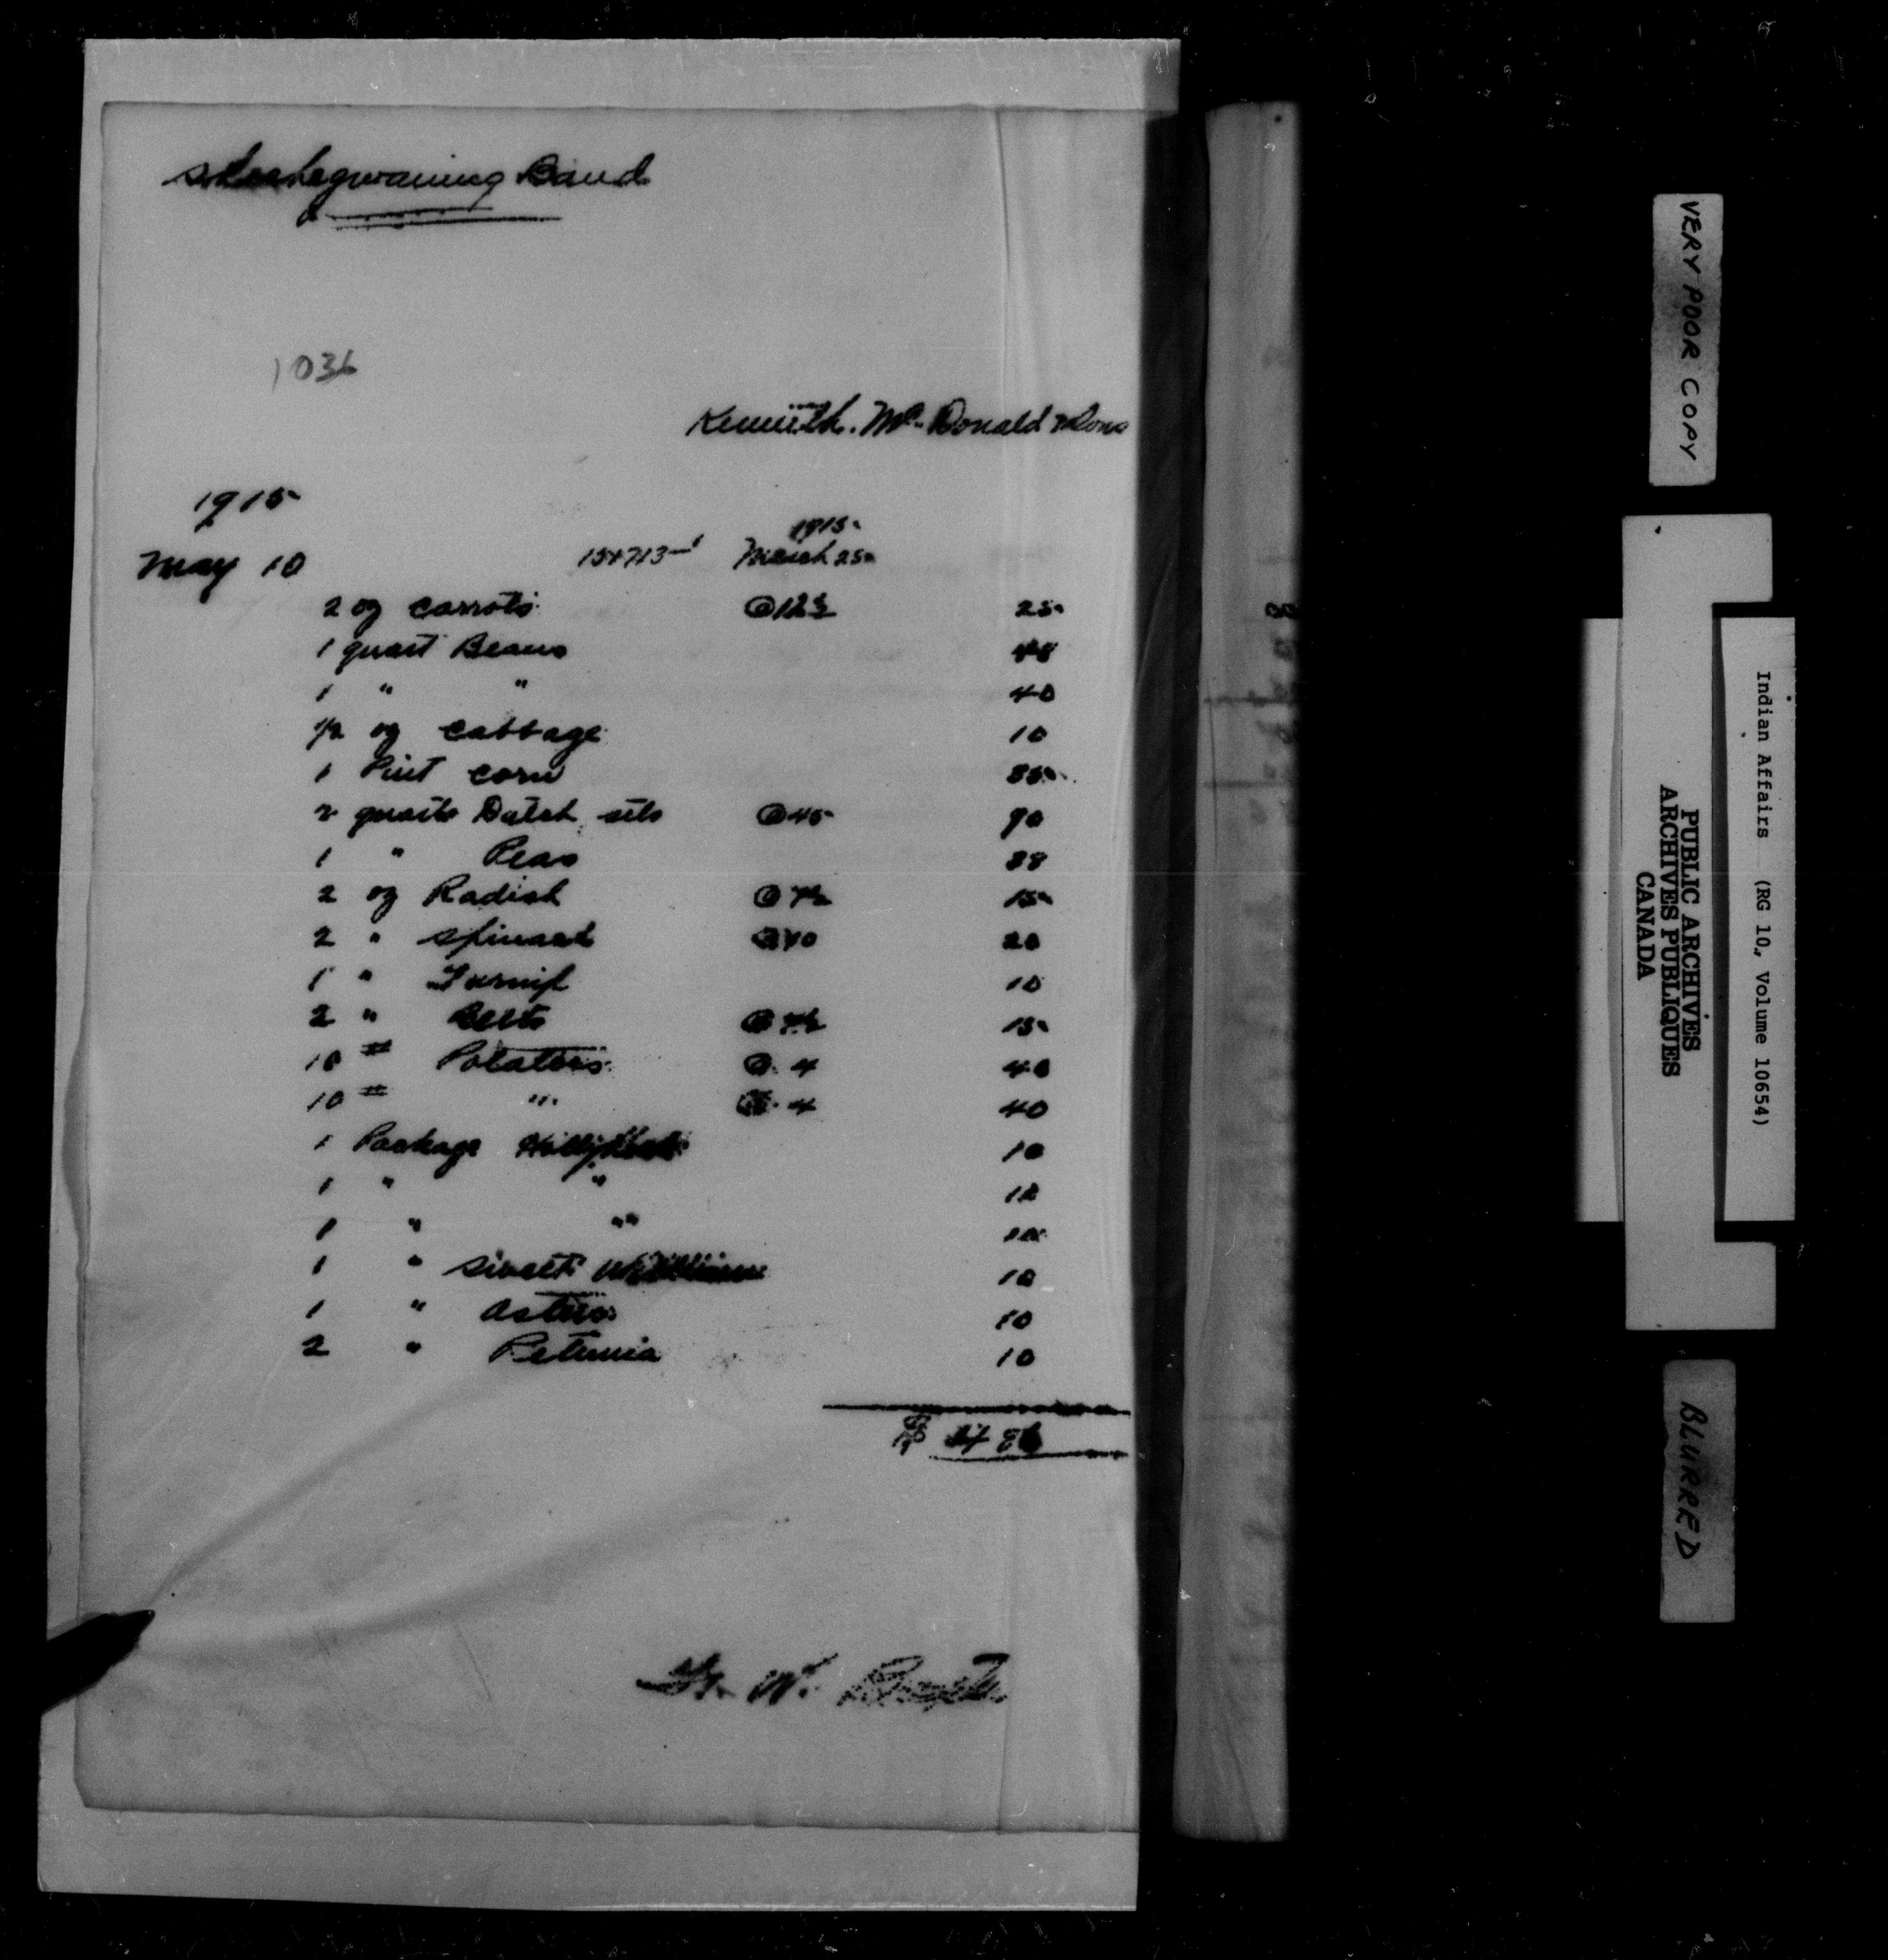 Sheshegwaning Band
1036
Kenneth. Mc. Donald & Sons
1915
1915
May 10 154713-1 March 25
2 oz Carrots @ 12½ 25
1 quart Beans
1 " " 40
1/2 oz Cabbage 10
1 Pint Corn
2 quarts Dutch sets @ 45 90
1 " Peas 38
2 oz Radish @ 7½ 15
2 " Spinach @ 10 20
1 " Turnip 10
2 " Beets @ 7½ 15
10 # Potatoes @ 4 40
10 # " @ 4 40
1 Package Hollyhock 10
1 " " 10
1 " " 10
1 " Sweet William 10
1 " Asters 10
2 " Petunia 10
$ 4 86
W.
VERY POOR COPY
Indian Affairs (RG 10, Volume 10654)
PUBLIC ARCHIVES
ARCHIVES PUBLIQUES
CANADA
BLURRED